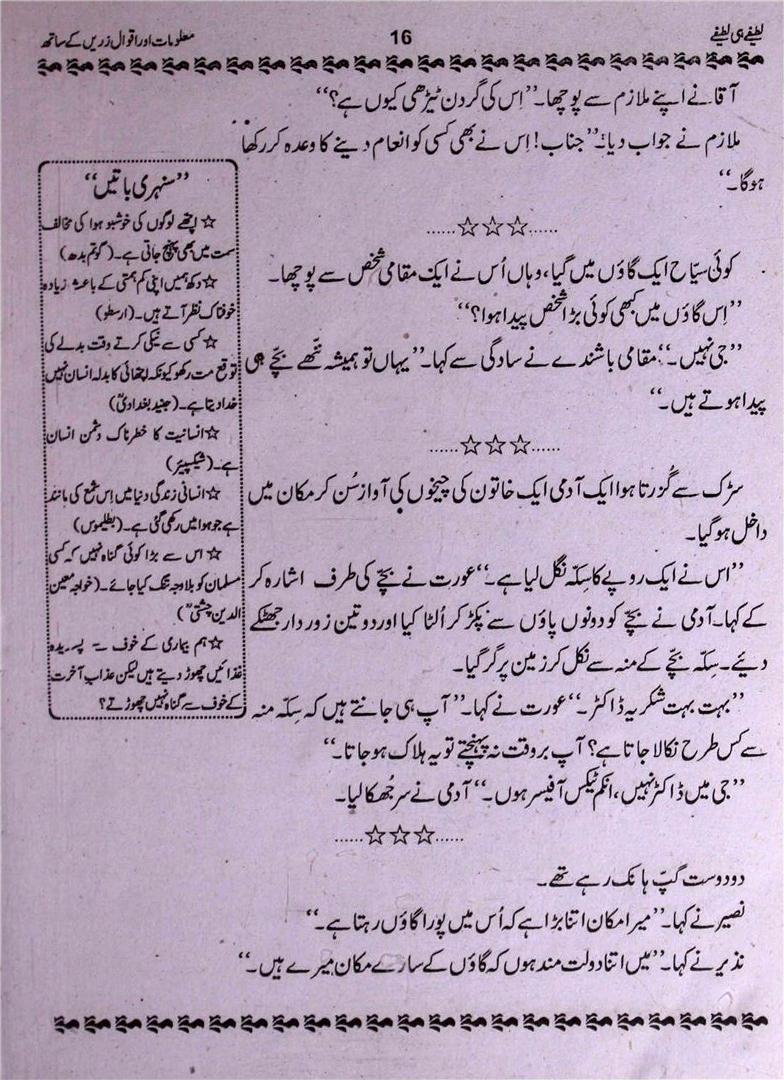 لطیفے ہی لطیفے
16
معلومات اور اقوال زریں کے ساتھ
آقا نے اپنے ملازم سے پوچھا۔ ”اِس کی گردن ٹیڑھی کیوں ہے؟“
ملازم نے جواب دیا: ”جناب! اِس نے بھی کسی کو انعام دینے کا وعدہ کر رکھا
ہوگا۔“
......☆☆☆......
کوئی سیّاح ایک گاؤں میں گیا، وہاں اُس نے ایک مقامی شخص سے پوچھا۔
”اِس گاؤں میں کبھی کوئی بڑا شخص پیدا ہوا؟“
”جی نہیں۔“ مقامی باشندے نے سادگی سے کہا۔ ”یہاں تو ہمیشہ ننّھے بچّے ہی
پیدا ہوتے ہیں۔“
......☆☆☆......
سڑک سے گُزرتا ہوا ایک آدمی ایک خاتون کی چیخوں کی آواز سُن کر مکان میں
داخل ہو گیا۔
”اس نے ایک روپے کا سِکّہ نگل لیا ہے۔“ عورت نے بچّے کی طرف اشارہ کر
کے کہا۔ آدمی نے بچّے کو دونوں پاؤں سے پکڑ کر اُلٹا کیا اور دو تین زور دار جھٹکے
دیئے۔ سِکّہ بچّے کے منہ سے نکل کر زمین پر گر گیا۔
”بہت بہت شکریہ ڈاکٹر۔“ عورت نے کہا۔ ”آپ ہی جانتے ہیں کہ سِکّہ منہ
سے کس طرح نکالا جاتا ہے؟ آپ بروقت نہ پہنچتے تو یہ ہلاک ہو جاتا۔“
”جی میں ڈاکٹر نہیں، انکم ٹیکس آفیسر ہوں۔“ آدمی نے سر جُھکا لیا۔
......☆☆☆......
دو دوست گپّ ہانک رہے تھے۔
نصیر نے کہا۔ ”میرا مکان اتنا بڑا ہے کہ اُس میں پورا گاؤں رہتا ہے۔“
نذیر نے کہا۔ ”میں اتنا دولت مند ہوں کہ گاؤں کے سارے مکان میرے ہیں۔“
”سنہری باتیں“
☆ اچھے لوگوں کی خوشبو ہوا کی مخالف
سمت میں بھی پہنچ جاتی ہے۔ (گوتم بدھ)
☆ دکھ ہمیں اپنی کم ہمتی کے باعث زیادہ
خوفناک نظر آتے ہیں۔ (ارسطو)
☆ کسی سے نیکی کرتے وقت بدلے کی
توقع مت رکھو کیونکہ اچھائی کا بدلہ انسان نہیں
خدا دیتا ہے۔ (جنید بغدادیؒ)
☆ انسانیت کا خطرناک دشمن انسان
ہے۔ (شیکسپیئر)
☆ انسانی زندگی دنیا میں اِس شمع کی مانند
ہے جو ہوا میں رکھی گئی ہے۔ (بطلیموس)
☆ اس سے بڑا کوئی گناہ نہیں کہ کسی
مسلمان کو بلاوجہ تنگ کیا جائے۔ (خواجہ معین
الدین چشتیؒ)
☆ ہم بیماری کے خوف سے پسندیدہ
غذائیں چھوڑ دیتے ہیں لیکن عذاب آخرت
کے خوف سے گناہ نہیں چھوڑتے؟